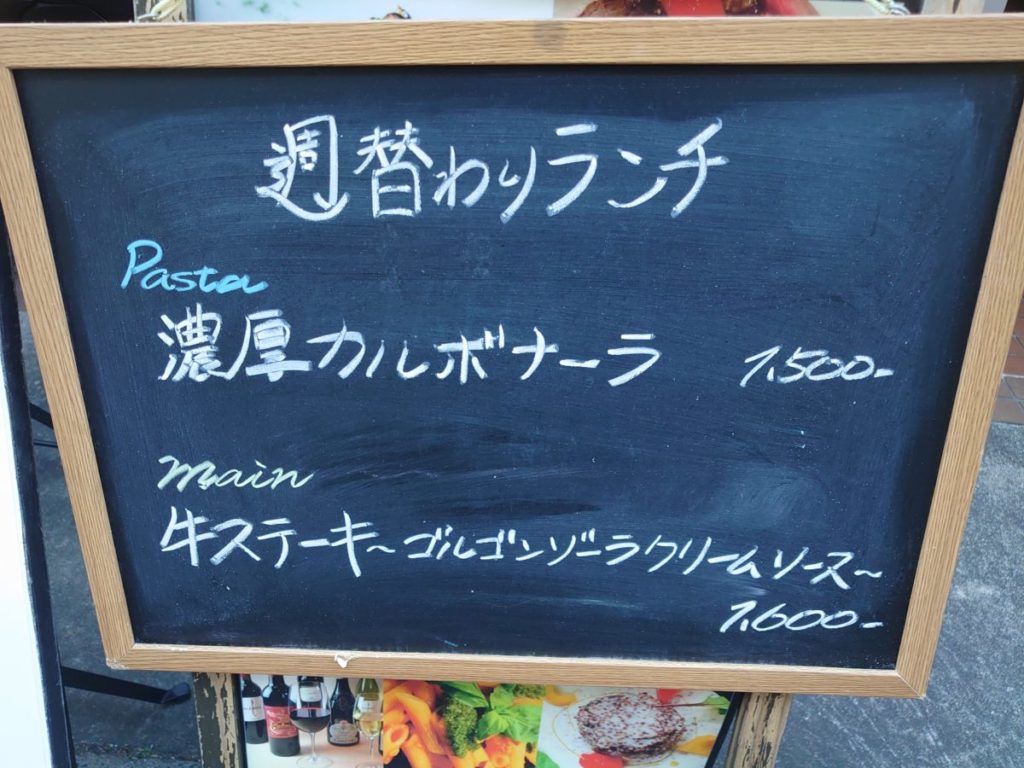 週替わりランチ
Pasta
濃厚カルボナーラ 1,500-
main
牛ステーキ~ゴルゴンゾーラクリームソース~
1,600-